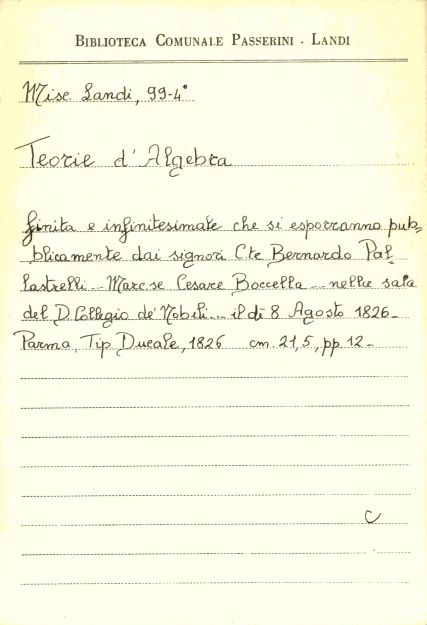 BIBLIOTECA COMUNALE PASSERINI - LANDI
Misc Landi, 99-4°
Teorie d'Algebra
finita e infinitesimale che si esporranno pub-
blicamente dai signori C.te Bernardo Pal-
lastrelli... Marc.se Cesare Boccella... nella sala
del D. Collegio de' Nobili... il dì 8 Agosto 1826-
Parma, Tip Ducale, 1826 cm. 21,5, pp 12-
C